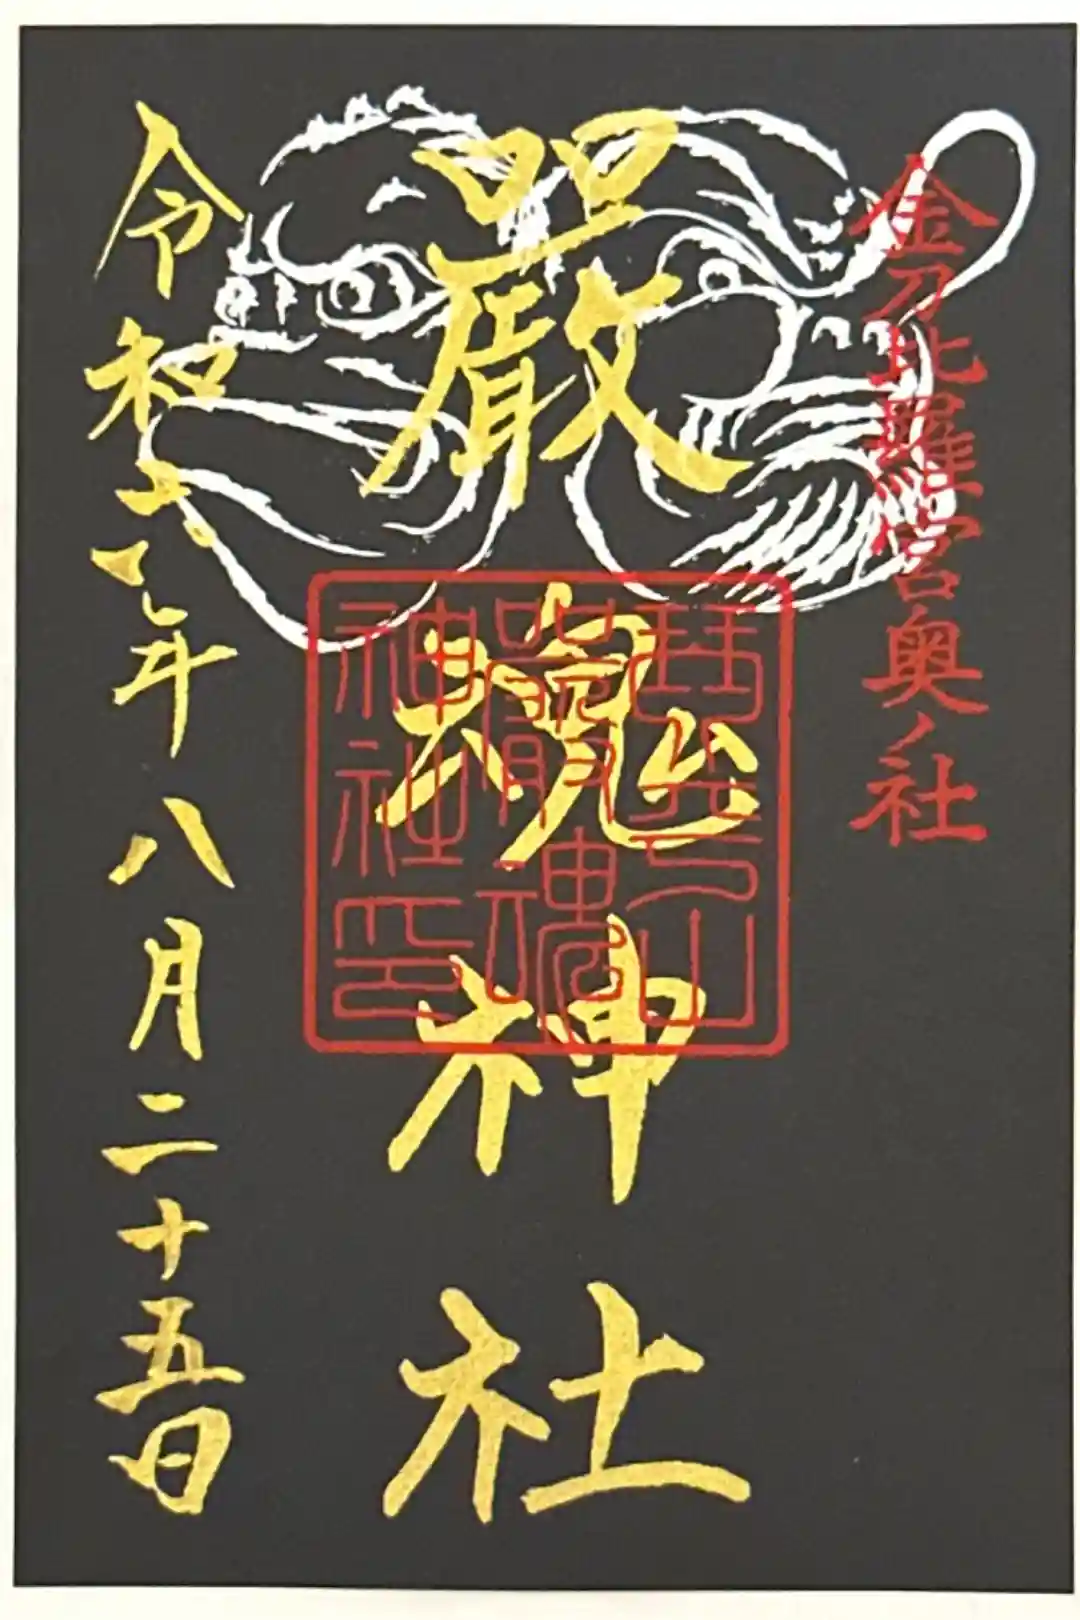 金刀比羅宮奥ノ社
嚴魂神社
琴平山
嚴魂
神社印
令和六年八月二十五日